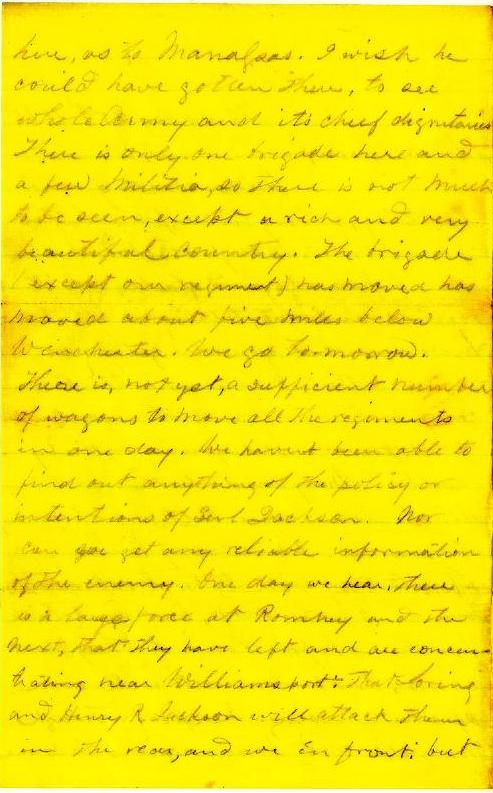 here, as to Manassas. I wish he
could have gotten there, to see
whole Army and it's chief dignitaries
There is only one brigade here and
a few Militia, so There is not much
to be seen, except a rich and very
beautiful country. The brigade
(except our regiment) has moved has
moved about five miles below
Winchester. We go tomorrow.
There is, not yet, a sufficient number
of wagons to move all the regiments
in one day. We havent been able to
find out anything of the policy or
intentions of Genl Jackson. Nor
can we get any reliable information
of the enemy. One day we hear, there
is a large force at Romney and the
next, that they have left and are concen-
trating near Williamsport. That Loring
and Henry R Jackson will attack them
in the rear, and we in front. but